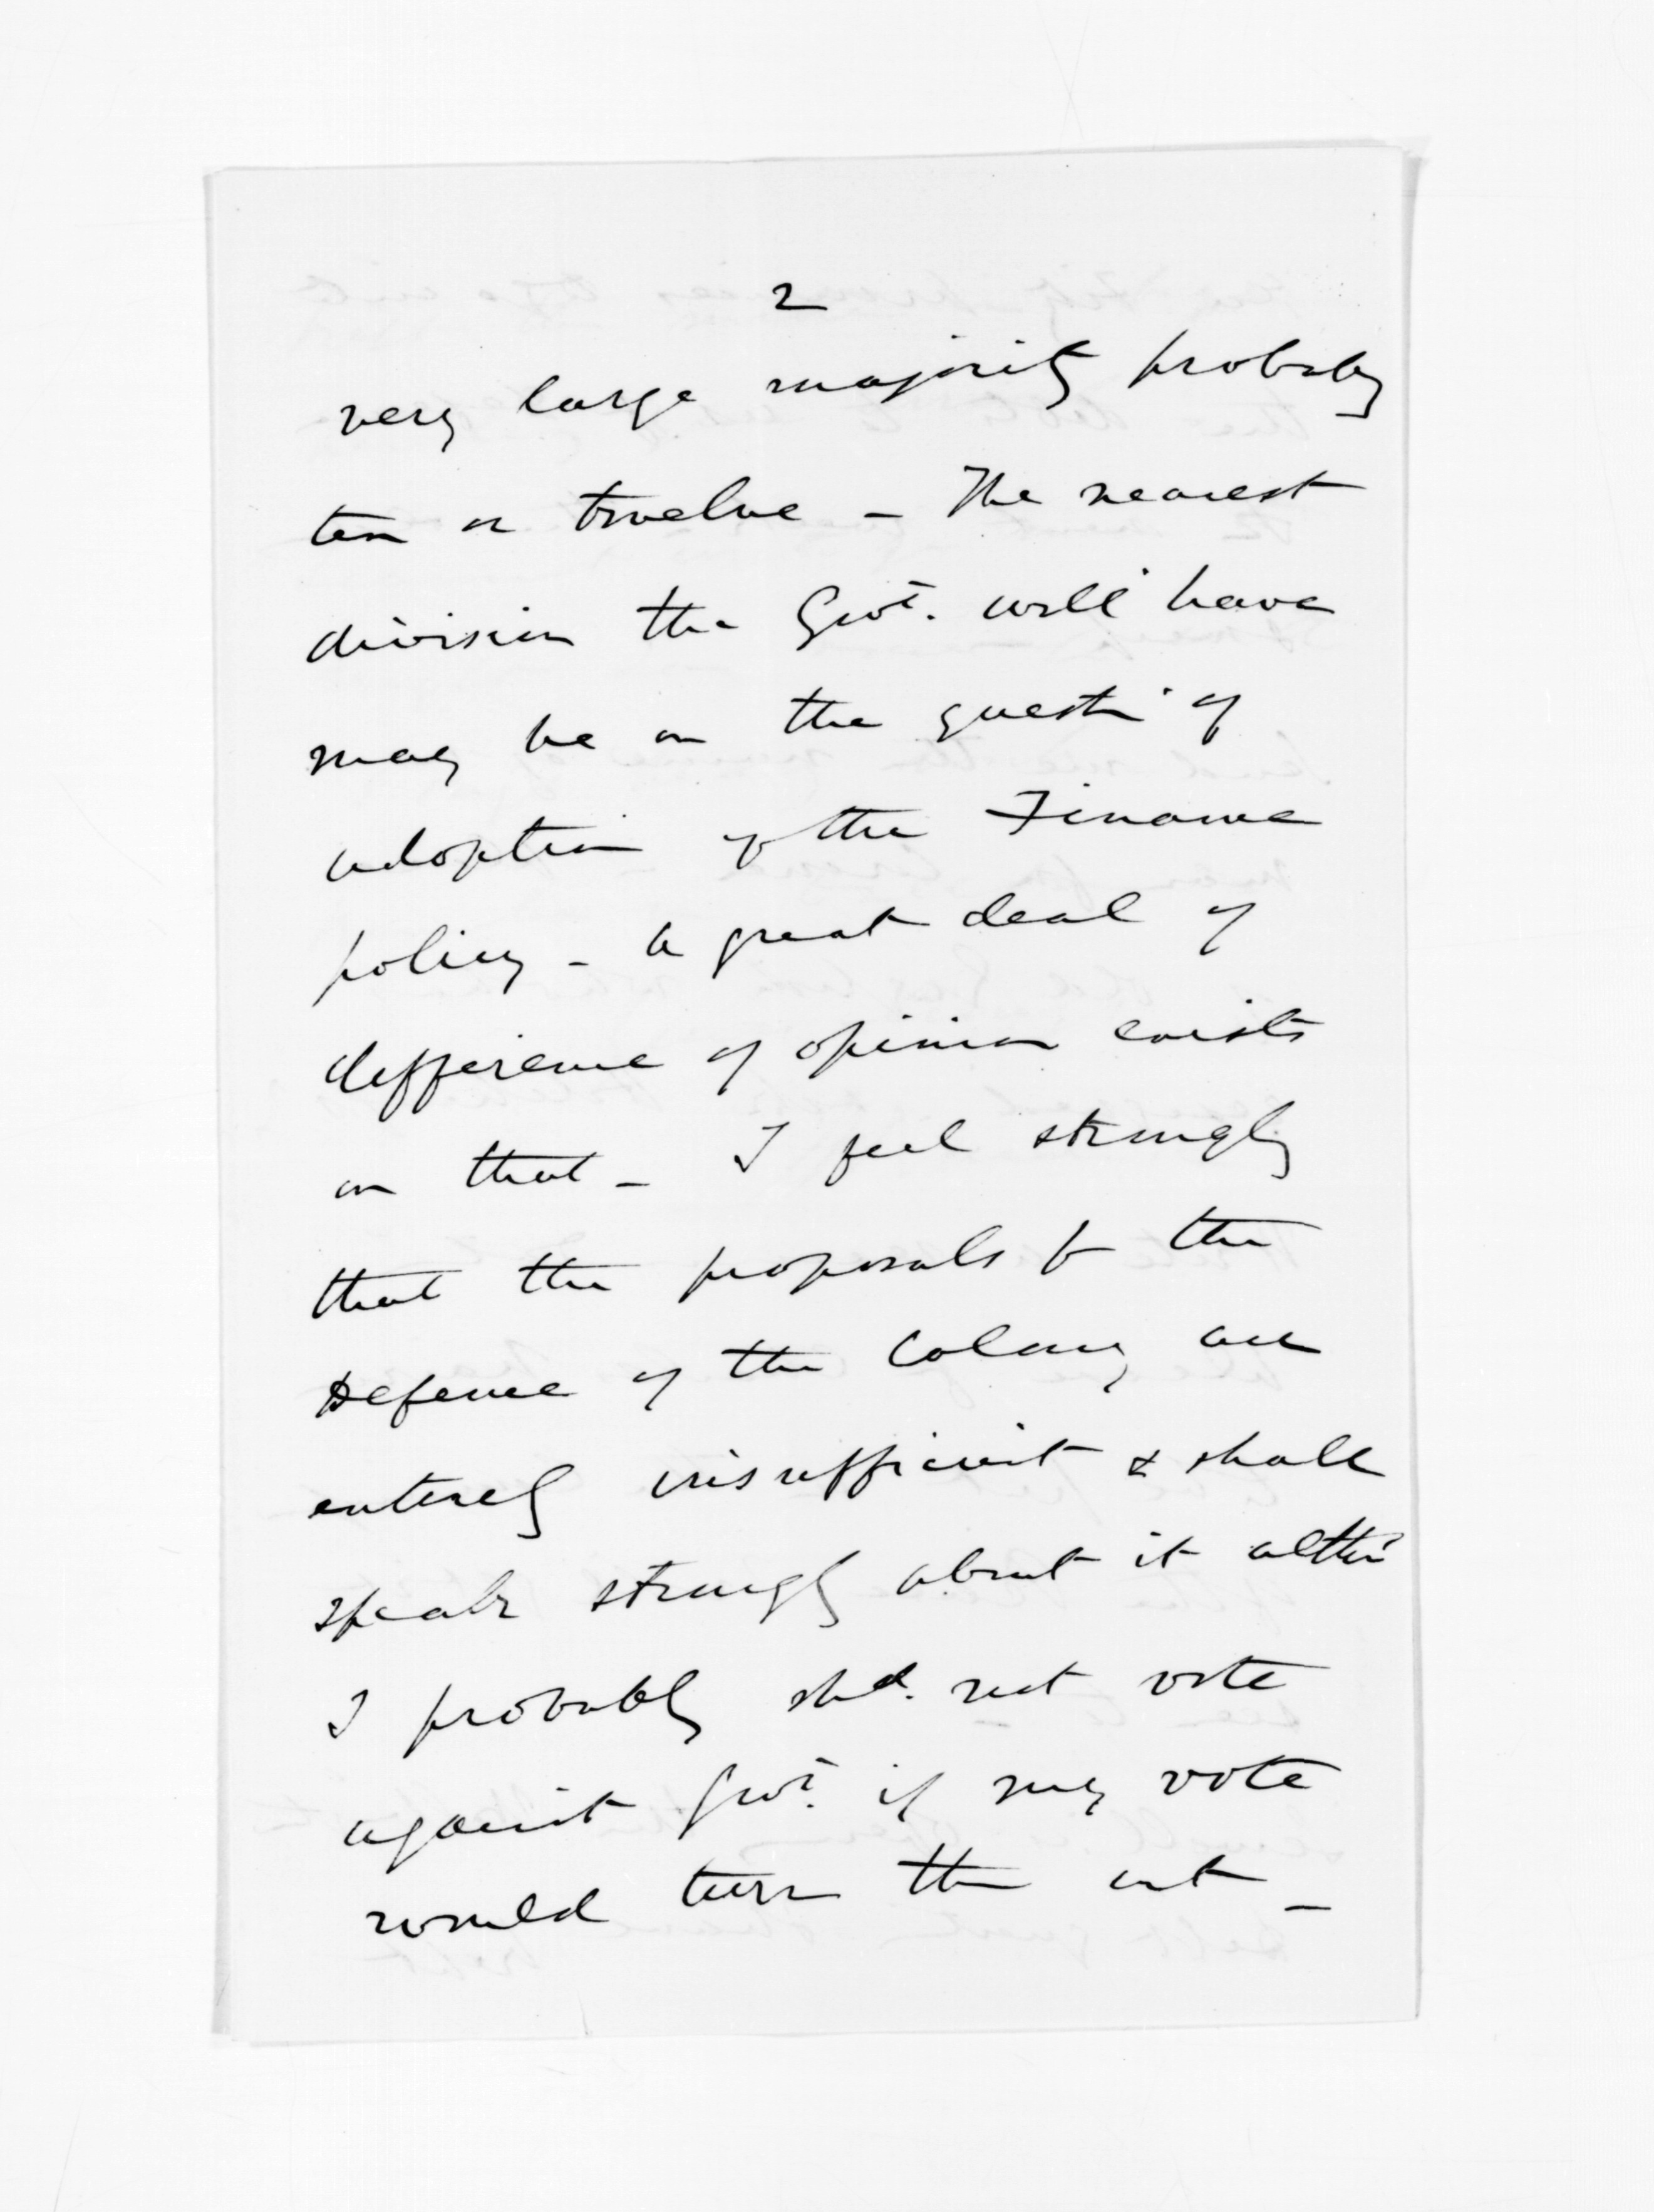 2
very large majority probably
ten or twelve - The nearest
division the Govt. will have
may be on the questn of
adoption of the Finance
policy - a great deal of
difference of opinion exists
on that - I feel strongly
that the proposals for the
Defence of the Colony are
entirely insufficient & shall
speak strongly about it altho'
I probably shd. not vote
against Govt. if my vote
would turn them out -